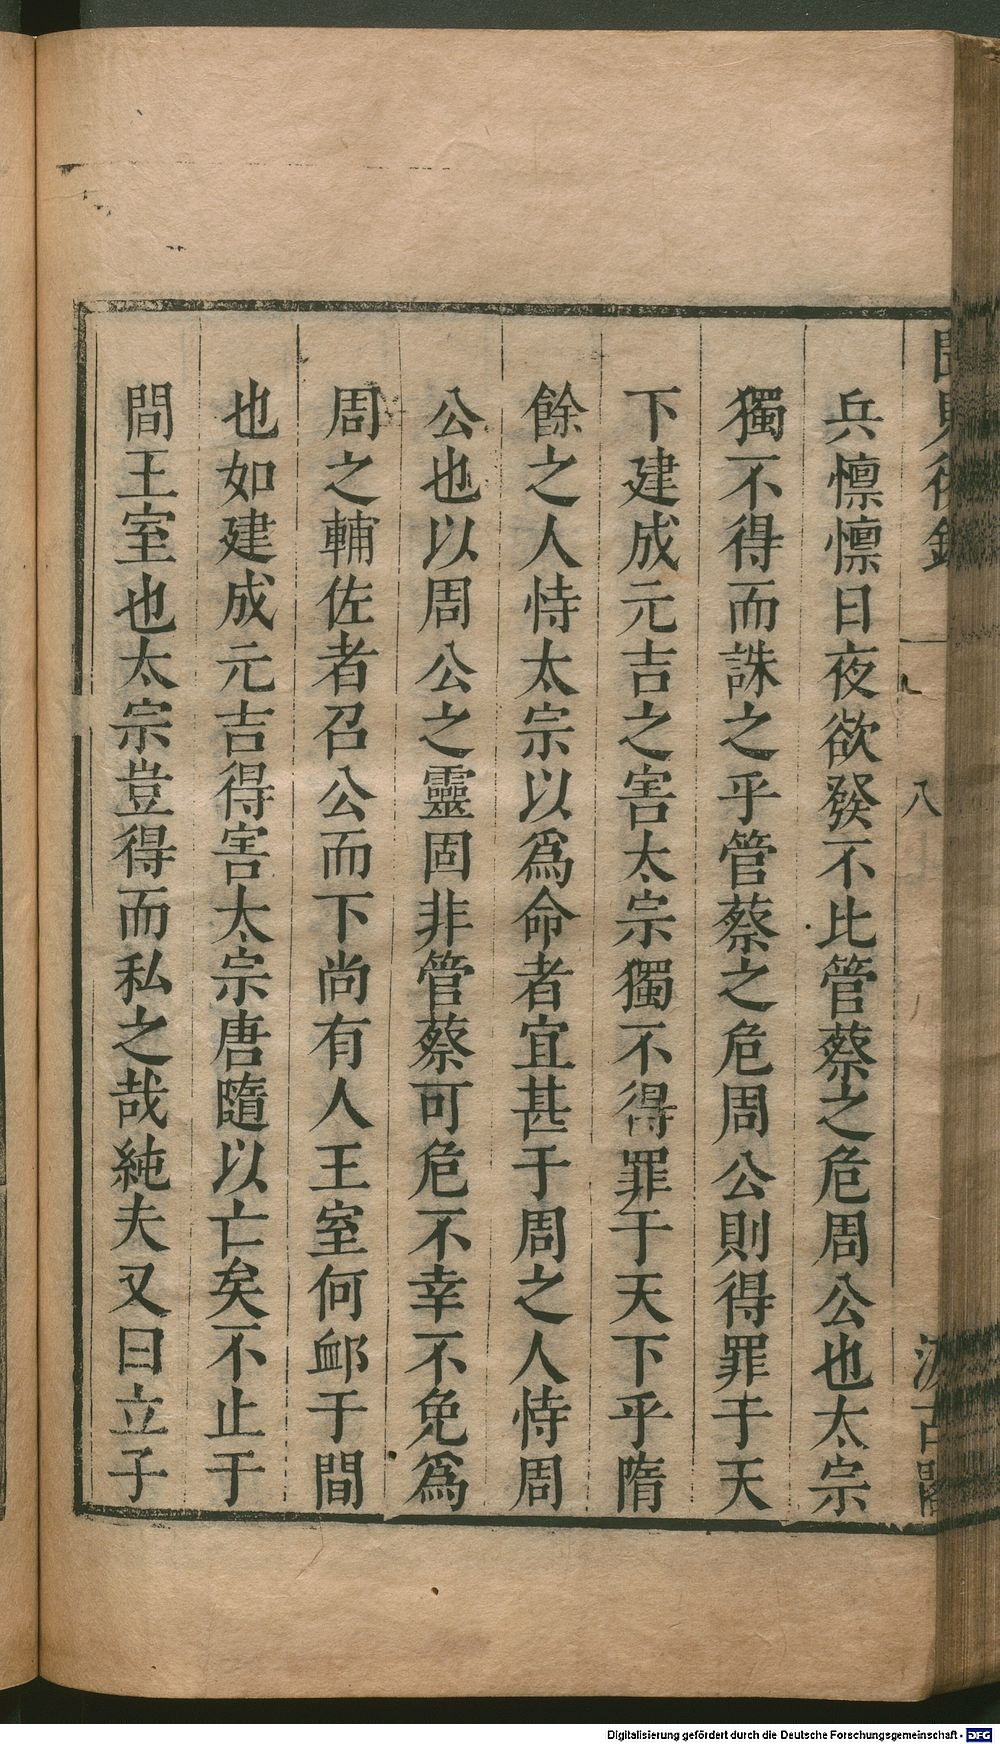 聞見後錄
八
汲古閣
兵懍懍日夜欲發不比管蔡之危周公也太宗
獨不得而誅之乎管蔡之危周公則得罪于天
下建成元吉之害太宗獨不得罪于天下乎隋
餘之人恃太宗以爲命者宜甚于周之人恃周
公也以周公之靈固非管蔡可危不幸不免爲
周之輔佐者召公而下尚有人王室何卹于間
也如建成元吉得害太宗唐隨以亡矣不止于
間王室也太宗豈得而私之哉純夫又曰立子
Digitalisierung gefördert durch die Deutsche Forschungsgemeinschaft - DFG